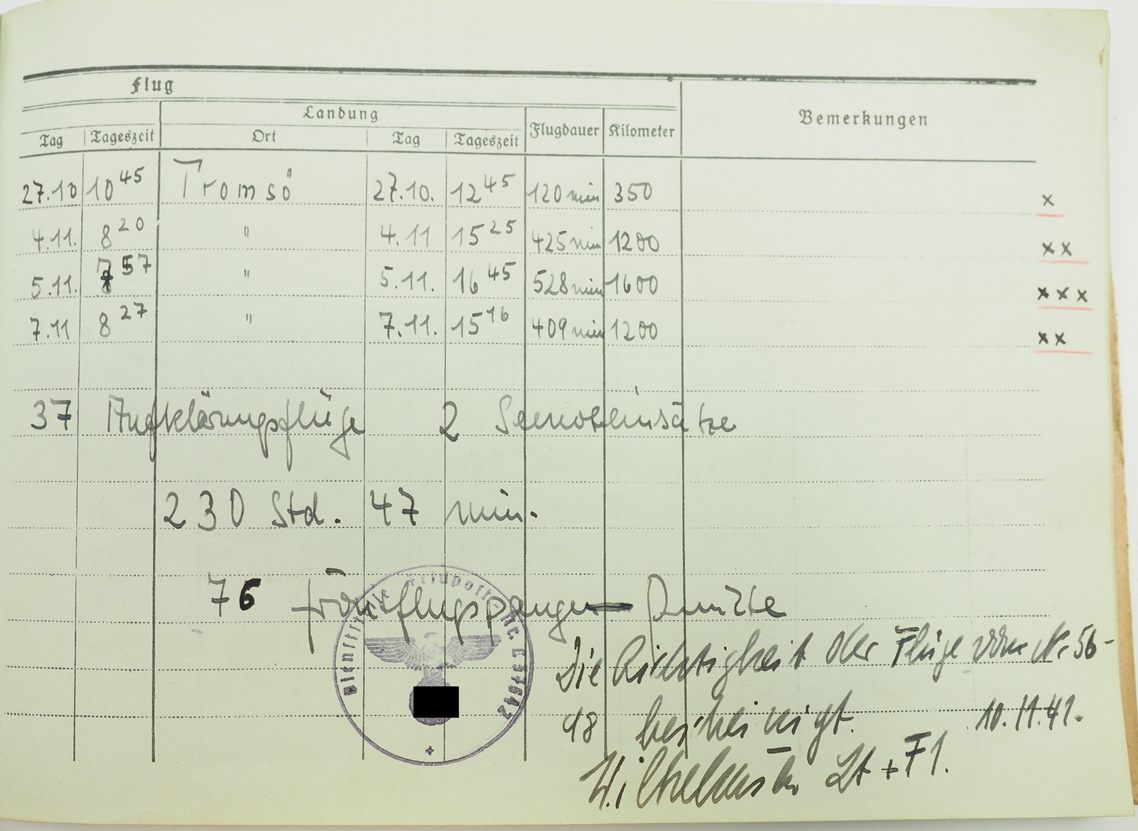 Flug
Landung
Bemerkungen
Tag Tageszeit Ort Tag Tageszeit Flugdauer Kilometer
27.10 10 45 Tromsö 27.10. 12 45 120 min 350 x
4.11. 8 20 " 4.11 15 25 425 min 1200 xx
5.11. 7 57 " 5.11. 16 45 528 min 1600 xxx
7.11 8 27 " 7.11. 15 16 409 min 1200 xx
37 Aufklärungsflüge 2 Seenoteinsätze
230 Std. 47 min.
76 Frontflugspangen Punkte
Dienststelle Feldpost Nr.
Die Richtigkeit der Flüge von Nr. 56-
48 bescheinigt. 10.11.41.
Lt + Fl.